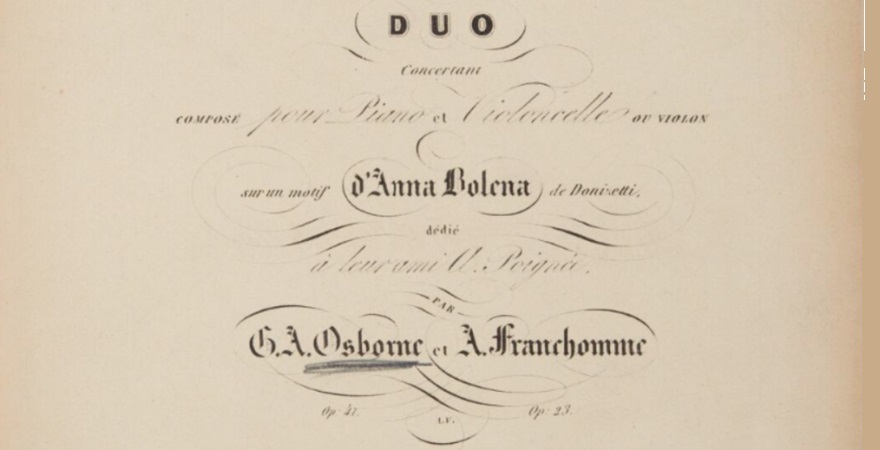 DUO
Concertant
COMPOSÉ pour Piano et Violoncelle OU VIOLON
sur un motif d'Anna Bolena de Donizetti,
dédié
à leur ami A. Poignée.
PAR
G.A. Osborne et A. Franchomme
Op: 41. Op: 23.
A.V.